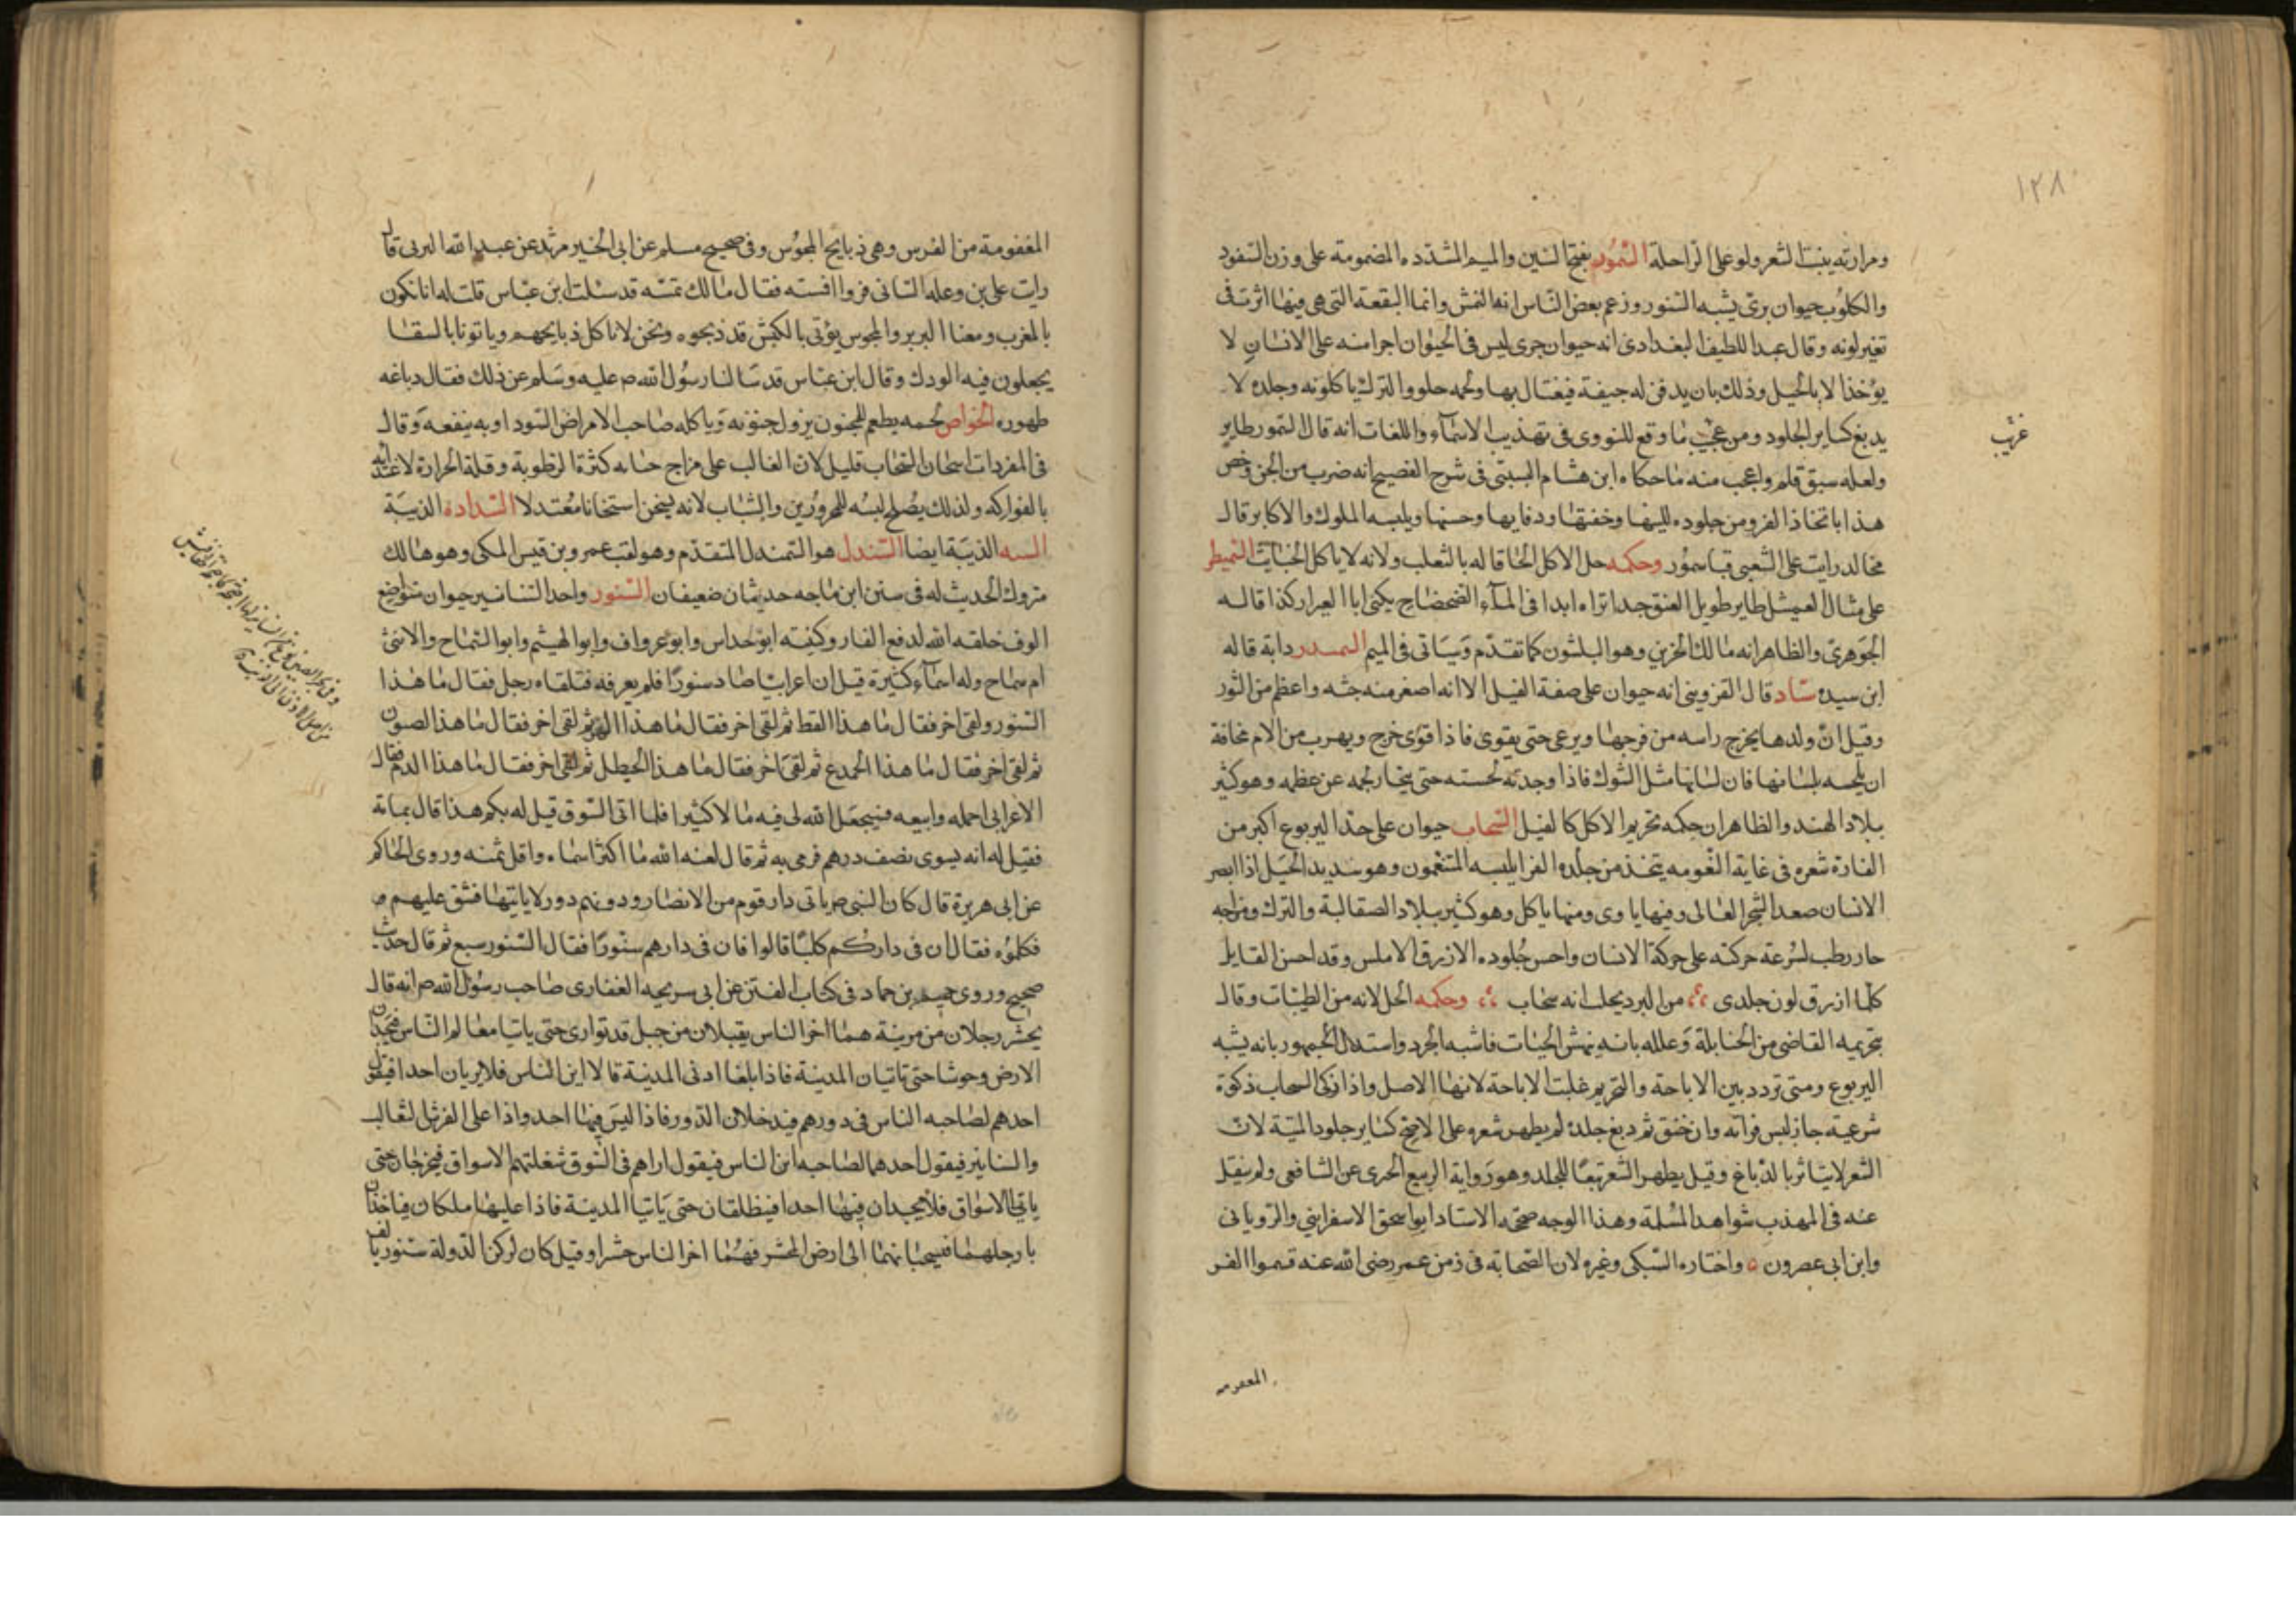 ١٢٨
ومرارته ينبت الشعر ولو على الراحلة السمور بفتح السين والميم المشددة المضمومة على وزن السفود
والكلوب حيوان برى يشبه السنور وزعم بعض الناس انه النمش وانما البقعة التى هى فيها اثرت فى
تغير لونه وقال عبد اللطيف البغدادى انه حيوان جرى ليس فى الحيوان اجرا منه على الانسان لا
يؤخذ الا بالحيل وذلك بان يدفن له جيفة فيغتال بها ولحمه حلو والترك ياكلونه وجلده لا
يدبغ كساير الجلود ومن عجيب ما وقع للنووى فى تهذيب الاسماء واللغات انه قال السمور طاير
غريب
ولعله سبق قلم واعجب منه ما حكاه ابن هشام البستى فى شرح الفصيح انه ضرب من الجن وخص
هذا باتخاذ الفرو من جلوده للينها وخفتها ودفايها وحسنها ويلبسه الملوك والاكابر قال
مخالد رايت على الشعبى قبا سمور وحكمه حل الاكل الحاقا له بالثعلب ولانه لا ياكل الخبايث السميطر
على مثال العميثل طاير طويل العنق جدا تراه ابدا فى الماء الضحضاح يكنى ابا العيرار كذا قاله
الجوهرى والظاهر انه مالك الحزين وهو البلشون كما تقدم وسياتى فى الميم السمسدر دابة قاله
ابن سيده سناد قال القزوينى انه حيوان على صفة الفيل الا انه اصغر منه جثه واعظم من الثور
وقيل ان ولدها يخرج راسه من فرجها ويرعى حتى يقوى فاذا قوى خرج ويهرب من الام مخافة
ان تلحسه بلسانها فان لسانها مثل الشوك فاذا وجدته لحسته حتى ينحاز لحمه عن عظمه وهو كثير
ببلاد الهند والظاهر ان حكمه تحريم الاكل كالفيل السنجاب حيوان على حد اليربوع اكبر من
الفارة شعره فى غاية النعومه يتخذ من جلده الفرا يلبسه المتنعمون وهو شديد الحيل اذا ابصر
الانسان صعد الشجر العالى وفيها ياوى ومنها ياكل وهو كثير ببلاد الصقالبة والترك ومزاجه
حار رطب لسرعة حركته على حركة الانسان واحسن جلوده الازرق الاملس وقد احسن القايل
كلما ازرق لون جلدى من البرد يخيل انه سنجاب وحكمه الحل لانه من الطيبات وقال
بتحريمه القاضى من الحنابلة وعلله بانه ينهش الحيات فاشبه الجرد واستدلال الجمهور بانه يشبه
اليربوع ومتى تردد بين الاباحة والتحريم غلبت الاباحة لانها الاصل واذا زكى السنجاب ذكوة
شرعية جاز لبس فراته وان خنق ثم دبغ جلده لم يطهر شعره على الاصح كساير جلود الميتة لان
الشعر لا يتاثر بالدباغ وقيل يطهر الشعر تبعا للجلد وهو رواية الربيع الجرى عن الشافعى ولم ينقل
عنه فى المهذب سواها هذا المسلة وهذا الوجه صححه الاستاد ابو اسحق الاسفراينى والرويانى
وابن ابى عصرون ٥ واختاره السبكى وغيره لان الصحابة فى زمن عمر رضى الله عنه قسموا الفر
المغفومه
المغفومة من الفرس وهى ذبايح المجوس وفى صحيح مسلم عن ابى الخير مرثد عن عبد الله البرنى قال
رايت على بن وعله السانى فروا فمسته فقال مالك تمسه قد سئلت ابن عباس قلت له انا نكون
بالمغرب ومعنا البربر والمجوس يؤتى بالكبش قد ذبحوه ونحن لا ناكل ذبايحهم وياتونا بالسقا
يجعلون فيه الودك وقال ابن عباس قد سالنا رسول الله صم عليه وسلم عن ذلك فقال دباغه
طهوره الخواص لحمه يطعم للمجنون يزول جنونه وياكله صاحب الامراض السوداويه ينفعه وقال
فى المفردات اسخان السنجاب قليل لان الغالب على مزاج حيوانه كثرة الرطوبة وقلة الحرارة لاغتذايه
بالفواركه ولذلك يصلح لبسه للمحرورين والشباب لانه يسخن استخانا معتدلا السداده الذيبة
السنه الذيبة ايضا السندل هو السمندل المتقدم وهو لقب عمرو بن قيس المكى وهو هالك
متروك الحديث له فى سنن ابن ماجه حديثان ضعيفان السنور واحد السنانير حيوان متواضع
الوف خلقه الله لدفع الفار وكنيته ابو خداس وابو عرواف وابو الهيثم وابو الشماح والانثى
ام شماح وله اسماء كثيرة قيل ان اعرابيا صاد سنورا فلم يعرفه فتلقاه رجل فقال ما هذا
السنور ولقى اخر فقال ما هذا القط ثم لقى اخر فقال ما هذا الهر ثم لقى اخر فقال ما هذا الصيون
ثم لقى اخر فقال ما هذا الخمدع ثم لقى اخر فقال ما هذا الخيطل ثم لقى اخر فقال ما هذا الدم فقال
الاعرابى احمله وابيعه فيجعل الله لى فيه مالا كثيرا فلما اتى السوق قيل له بكم هذا قال بماية
فقيل له انه يسوى نصف درهم فرمى به ثم قال لعنه الله ما اكثر اسماءه واقل ثمنه وروى الحاكم
عن ابى هريرة قال كان النبى صم ياتى دار قوم من الانصار ودونهم دور لا ياتيها فشق عليهم
فكلموه فقال ان فى داركم كلبا قالوا فان فى دارهم سنورا فقال السنور سبع ثم قال حديث
صحيح وروى نعيم بن حماد فى كتاب الفتن عن ابى سريحه الغفارى صاحب رسول الله صم انه قال
يحشر رجلان من مزينة هما اخر الناس يقبلان من جبل قد توارى حتى ياتيا معالم الناس فيجدان
الارض وحوشا حتى ياتيان المدينة فاذا بلغا ادنى المدينة قالا اين الناس فلا يريان احدا فيقول
احدهم لصاحبه الناس فى دورهم فيدخلان الدور فاذا ليس فيها احد واذا على الفرش الثعالب
والسنانير فيقول احدهما لصاحبه اين الناس فيقول اراهم فى السوق شغلتهم الاسواق فيخرجان حتى
ياتيا الاسواق فلا يجدان فيها احدا فينطلقان حتى ياتيا المدينة فاذا عليها ملكان فياخذان
بارجلهما فيسحبانهما الى ارض المحشر فهما اخر الناس حشرا وقيل كان لركن الدولة سنور يالف